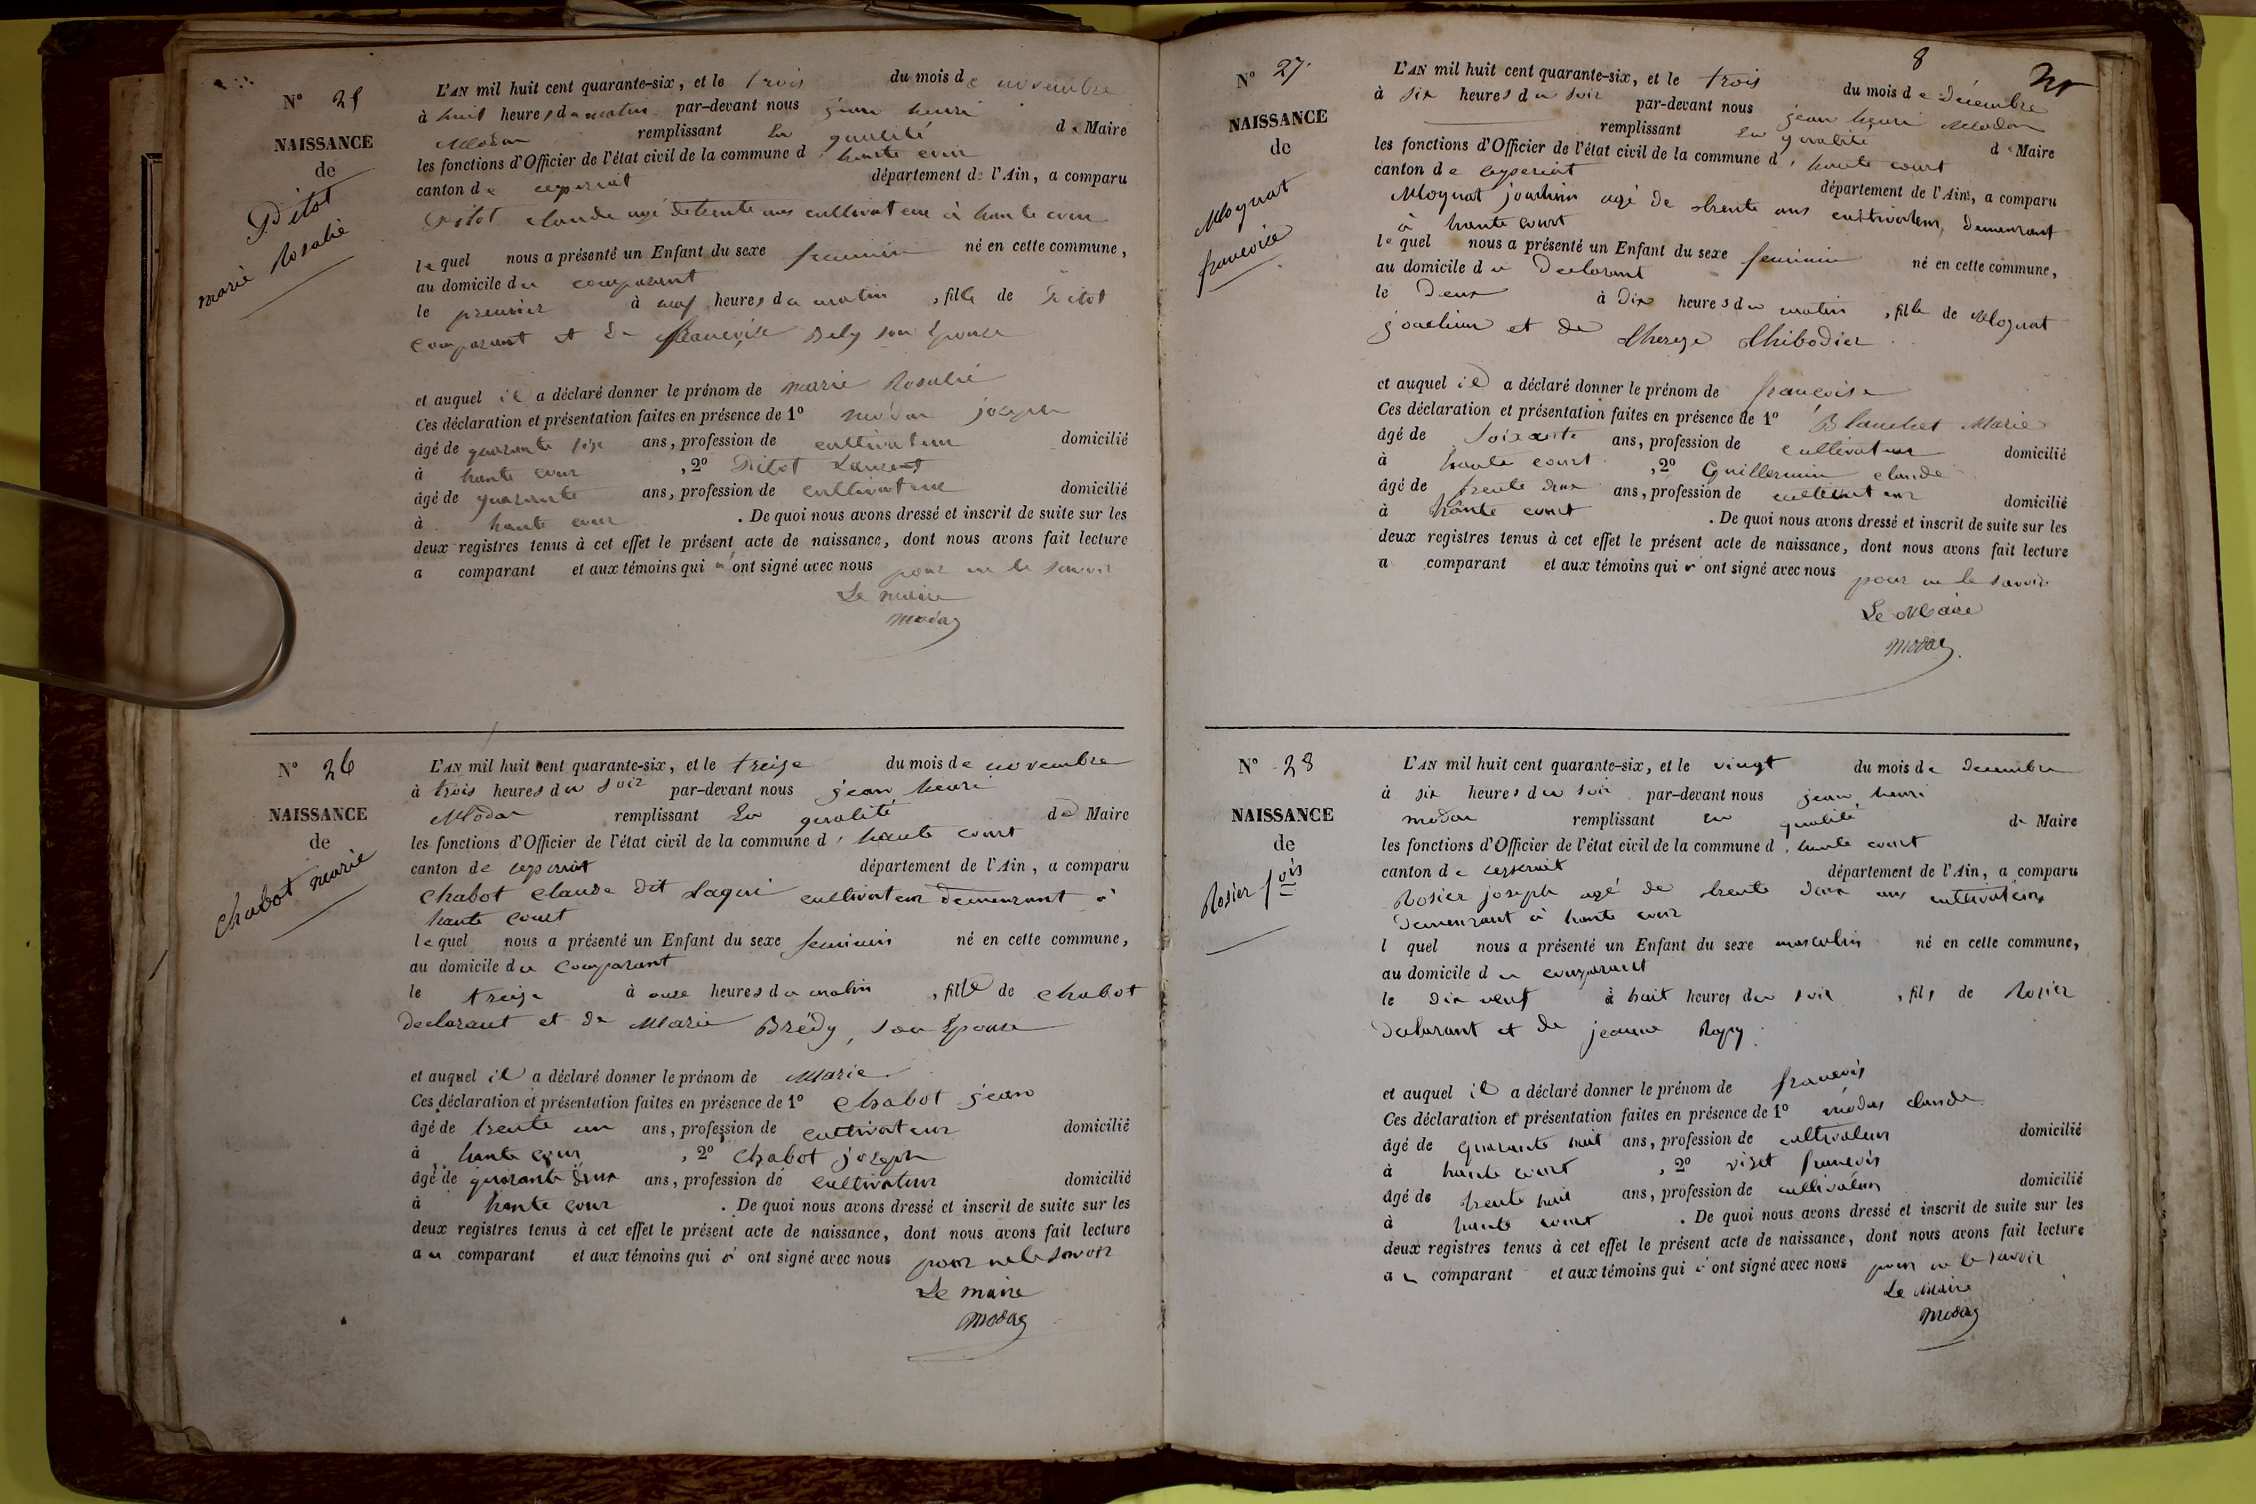 N° 25
NAISSANCE
de
Pitot
marie Rosalie
L'AN mil huit cent quarante-six, et le trois du mois de novembre
à huit heures du matin par-devant nous jean henri
Modas remplissant en qualité de Maire
les fonctions d'Officier de l'état civil de la commune d'haute cour
canton de ceyseriat département de l'Ain, a comparu
Pitot claude agé de trente ans cultivateur à haute cour
lequel nous a présenté un Enfant du sexe feminin né en cette commune,
au domicile du comparant
le premier à neuf heures du matin, fille de Pitot
comparant et de françoise Bely son Epouse
et auquel il a déclaré donner le prénom de marie Rosalie
Ces déclaration et présentation faites en présence de 1° modas joseph
âgé de quarante six ans, profession de cultivateur domicilié
à haute cour, 2° Pitot Laurent
âgé de quarante ans, profession de cultivateur domicilié
à haute cour. De quoi nous avons dressé et inscrit de suite sur les
deux registres tenus à cet effet le présent acte de naissance, dont nous avons fait lecture
a comparant et aux témoins qui n'ont signé avec nous pour ne le savoir
Le maire
modas
N° 26
NAISSANCE
de
Chabot marie
L'AN mil huit cent quarante-six, et le treize du mois de novembre
à trois heures du soir par-devant nous jean henri
Modas remplissant en qualité de Maire
les fonctions d'Officier de l'état civil de la commune d'haute court
canton de ceyseriat département de l'Ain, a comparu
Chabot claude dit Laqui cultivateur demeurant à
haute court
lequel nous a présenté un Enfant du sexe feminin né en cette commune,
au domicile du comparant
le treize à onze heures du matin, fille de chabot
declarant et de Marie Brédy, son Epouse
et auquel il a déclaré donner le prénom de Marie
Ces déclaration et présentation faites en présence de 1° Chabot jean
âgé de trente un ans, profession de cultivateur domicilié
à haute cour, 2° Chabot joseph
âgé de quarante deux ans, profession de cultivateur domicilié
à haute cour. De quoi nous avons dressé et inscrit de suite sur les
deux registres tenus à cet effet le présent acte de naissance, dont nous avons fait lecture
au comparant et aux témoins qui n'ont signé avec nous pour ne le savoir
Le maire
modas
8
N° 27
NAISSANCE
de
Moynat
françoise
L'AN mil huit cent quarante-six, et le trois du mois de décembre
à six heures du soir par-devant nous jean henri Modas
remplissant en qualité de Maire
les fonctions d'Officier de l'état civil de la commune d'haute court
canton de ceyseriat département de l'Ain, a comparu
Moynat joachim agé de trente ans cultivateur, demeurant
à haute court
lequel nous a présenté un Enfant du sexe feminin né en cette commune,
au domicile du declarant
le deux à dix heures du matin, fille de Moynat
joachim et de therese thibodier
et auquel il a déclaré donner le prénom de françoise
Ces déclaration et présentation faites en présence de 1° Blanchet Marie
âgé de soixante ans, profession de cultivateur domicilié
à haute court, 2° Guillermin claude
âgé de trente deux ans, profession de cultivateur domicilié
à haute court. De quoi nous avons dressé et inscrit de suite sur les
deux registres tenus à cet effet le présent acte de naissance, dont nous avons fait lecture
a comparant et aux témoins qui n'ont signé avec nous pour ne le savoir
Le Maire
modas
N° 28
NAISSANCE
de
Rosier fois
L'AN mil huit cent quarante-six, et le vingt du mois de decembre
à six heures du soir par-devant nous jean henri
modas remplissant en qualité de Maire
les fonctions d'Officier de l'état civil de la commune d'haute court
canton de ceyseriat département de l'Ain, a comparu
Rosier joseph agé de trente deux ans cultivateur
demeurant à haute cour
l quel nous a présenté un Enfant du sexe masculin né en cette commune,
au domicile du comparant
le dix neuf à huit heures du soir, fils de Rosier
declarant et de jeanne
et auquel il a déclaré donner le prénom de francois
Ces déclaration et présentation faites en présence de 1° modas claude
âgé de quarante huit ans, profession de cultivateur domicilié
à haute court, 2° viset francois
âgé de trente huit ans, profession de cultivateur domicilié
à haute court. De quoi nous avons dressé et inscrit de suite sur les
deux registres tenus à cet effet le présent acte de naissance, dont nous avons fait lecture
au comparant et aux témoins qui n'ont signé avec nous pour ne le savoir
Le Maire
modas